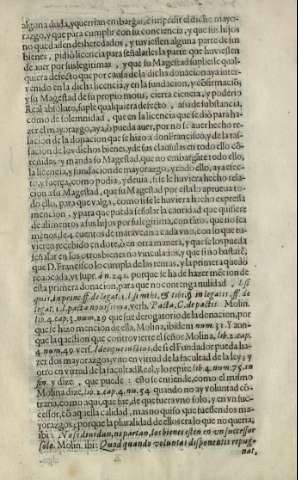 alguna duda, y querrian embargar, e impedir el dicho mayo-
razgo, y que para cumplir con su conciencia, y que sus hijos
no quedassen desheredados, y tuviessen alguna parte de sus
bienes, pidió licencia para señalarles la parte que huviessen
de aver por sus legitimas, y que su Magestad supliesse qual-
quiera defecto que por causa de la dicha donacion aya inter-
venido en la dicha licencia, y en la fundacion, y confirmacion;
y su Magestad de su proprio motu, cierta ciencia, y poderio
Real absoluto, suple qualquiera defecto, assi de substancia,
como de solemnidad, que en la licencia que se dió para ha-
zer el mayorazgo, aya, ò pueda aver, por no se aver hecho re-
lacion de la donacion que se hizo à don Francisco, y de la tas-
sacion de los dichos bienes, y de sus clausulas en todo ello con-
tenidas: y manda su Magestad, que no embargante todo ello,
la licencia, y fundacion de mayorazgo, y en ello, aya efec-
to, y fuerça, como podia, y devia, si se le huviera hecho rela-
cion à su Magestad, que su Magestad por esta lo aprueua to-
do ello, para que valga, como si se le huviera hecho expressa
mencion, y para que pueda señalar la cantidad que quisiere
de alimentos a sus hijos por su legitima, con tanto, que no sea
menos de 4. cuentos de maravedis a cada vno, con lo que hu-
vieren recebido en dote, ò en otra manera, y que se los pueda
señalar en los otros bienes no vinculados, y que sino bastarè,
que D. Francisco lo cumpla de las rentas, y la primera quedó
revocada, vt supr. dn. 242. porque se ha de hazer mencion de
esta primera donacion, para que no contenga nulidad, l. si
quis, in princ. ff. de legat. 3. l. si mihi, & tibi, § in legatis, ff. de
legat. 1. l. pacta novissima, verb. Pacta, C. de pactis. Molin.
lib. 4. cap. 2. num. 29. que fue derogatorio de la donacion, por
que se hizo mencion de ella, Molina, ibidem num. 31. Y ann-
que la question que controvierte el señor Molina, lib. 1. cap.
4. num. 49. vers. Ideoque in his, de si el Fundador pueda ha-
zer dos mayorazgos, vno en virtud de la facultad de la ley, y
otro en virtud de la facultad Real, y lo repite lib. 4. num. 75. in
fin. y dize, que puede: esto se entiende, como el mismo
Molina dize, lib. 2. cap. 4. nu. 54. quando no ay voluntad con-
traria, como aqui la huvo, de que fuera vno solo, y en vn suc-
cessor, cõ aquella calidad, mas no quiso que fuessen dos ma-
yorazgos, porque la pluralidad de ellos era lo que no queria,
ibi: No se dividan, ni partan, los bienes esten en vn successor
solo. Molin. ibi: Quod quando voluntas disponentis repug-
nat,